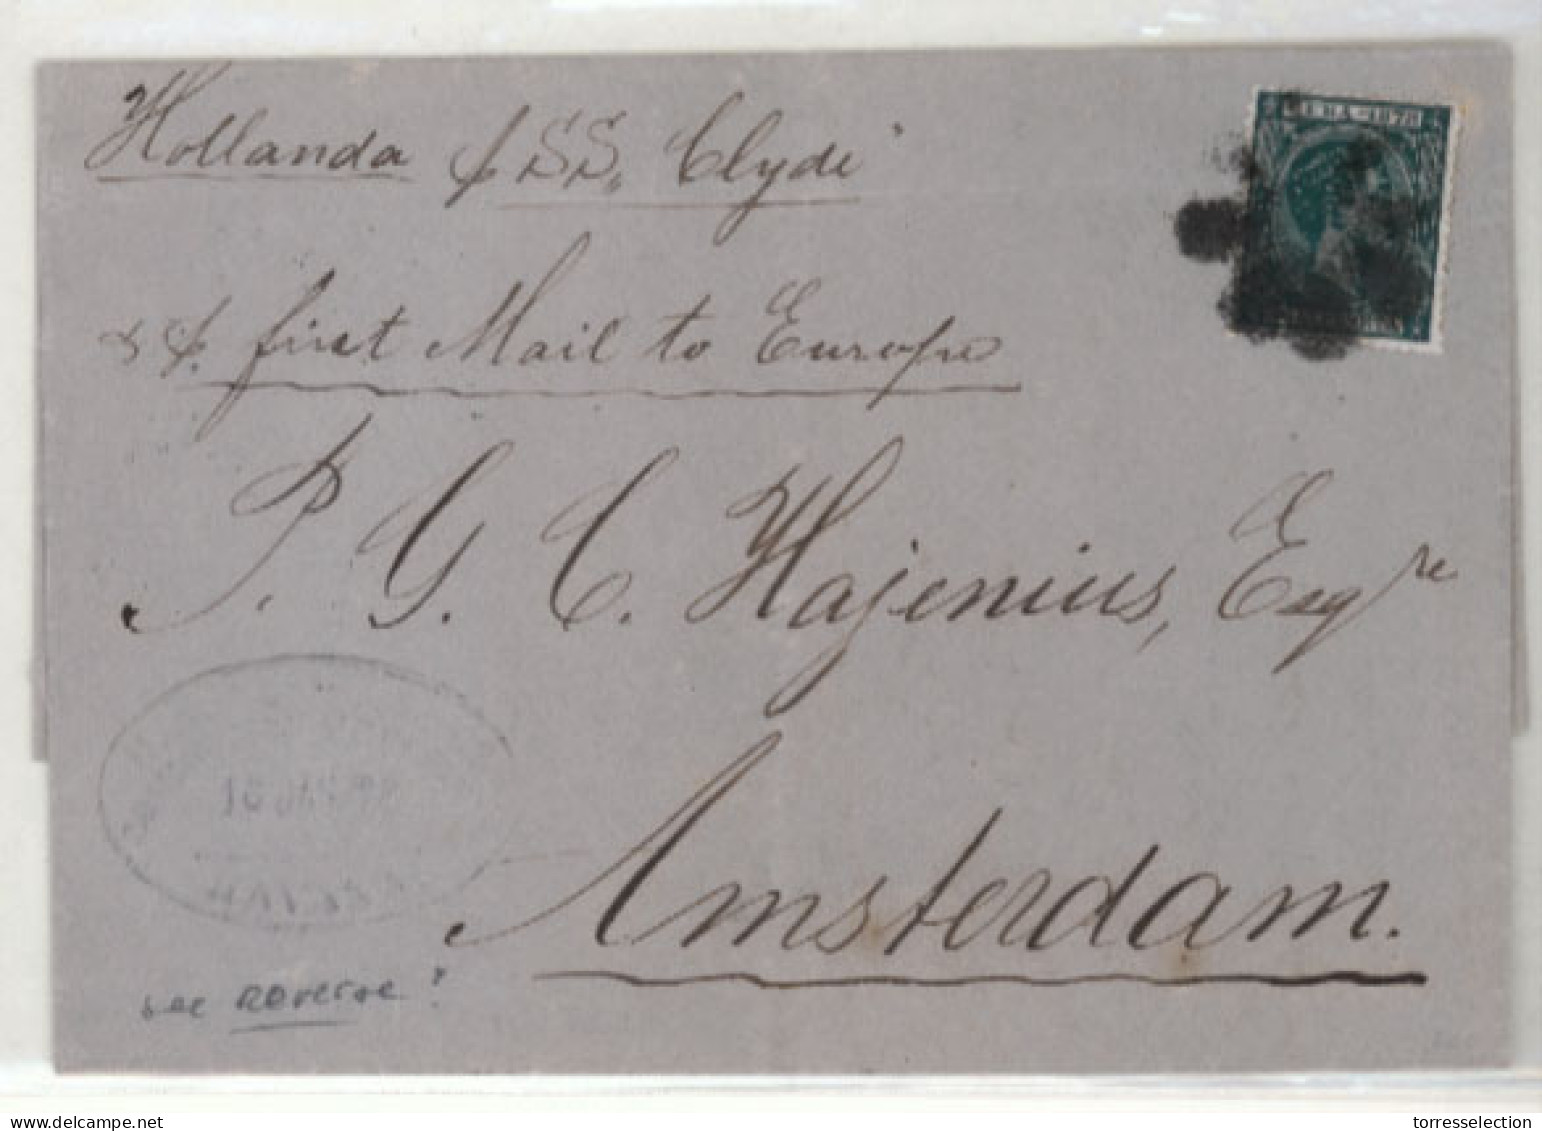 Hollanda p SS „Clyde"
CUBA-1878
& p. first Mail to Europe
P. G. C. Hajenius, Esqre
16 JAN
HAVANA
Amsterdam.
see reverse!
delcampe.net
torresselection